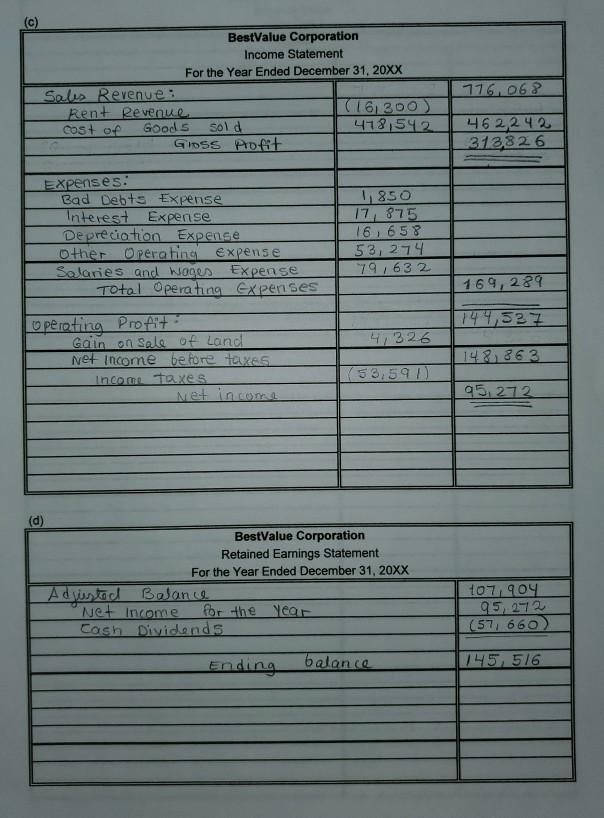 (c)
BestValue Corporation
Income Statement
For the Year Ended December 31, 20XX
Sales Revenue: 776,068
Rent Revenue (16,300)
Cost of Goods Sold 478,542 462,242
Gross Profit 313,826
Expenses:
Bad Debts Expense 1,850
Interest Expense 17,875
Depreciation Expense 16,658
Other Operating Expense 53,274
Salaries and Wages Expense 79,632
Total Operating Expenses 169,289
Operating Profit: 144,537
Gain on Sale of Land 4,326
Net Income before taxes 148,863
Income Taxes (53,591)
Net income 95,272
(d)
BestValue Corporation
Retained Earnings Statement
For the Year Ended December 31, 20XX
Adjusted Balance 107,904
Net Income for the Year 95,272
Cash Dividends (57,660)
Ending balance 145,516